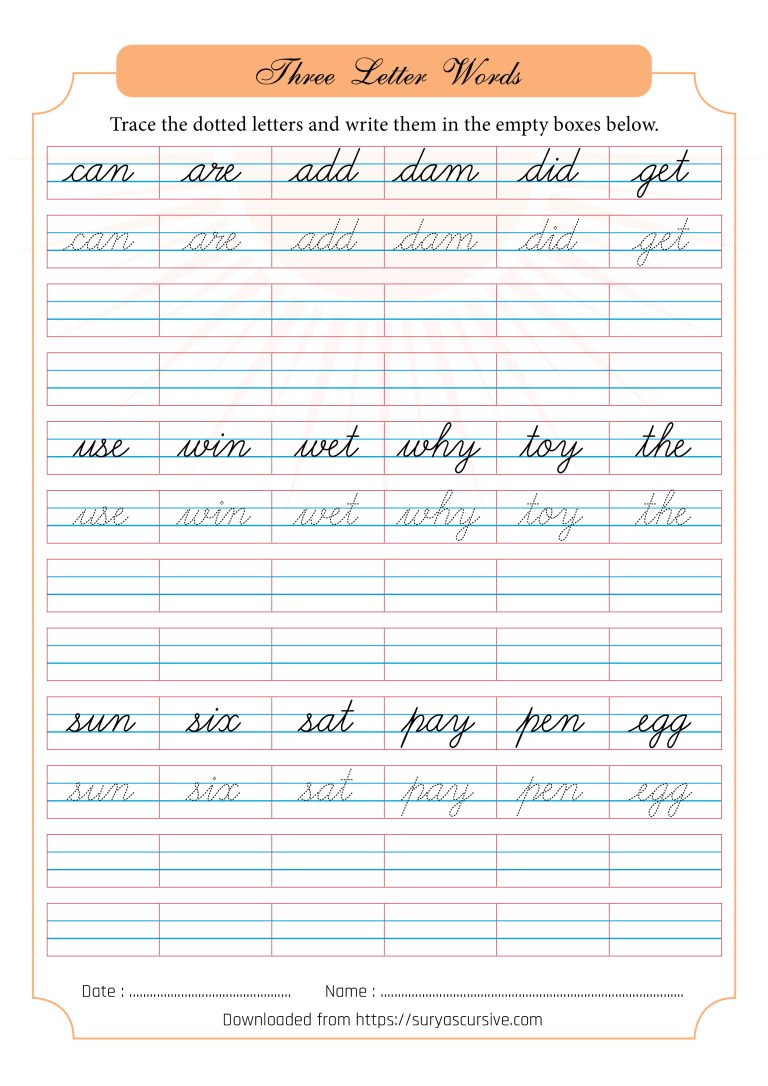 Three Letter Words
Trace the dotted letters and write them in the empty boxes below.
can are add dam did get
can are add dam did get
use win wet why toy the
use win wet why toy the
sun six sat pay pen egg
sun six sat pay pen egg
Date : ............................................... Name : ........................................................................................
Downloaded from https://suryascursive.com